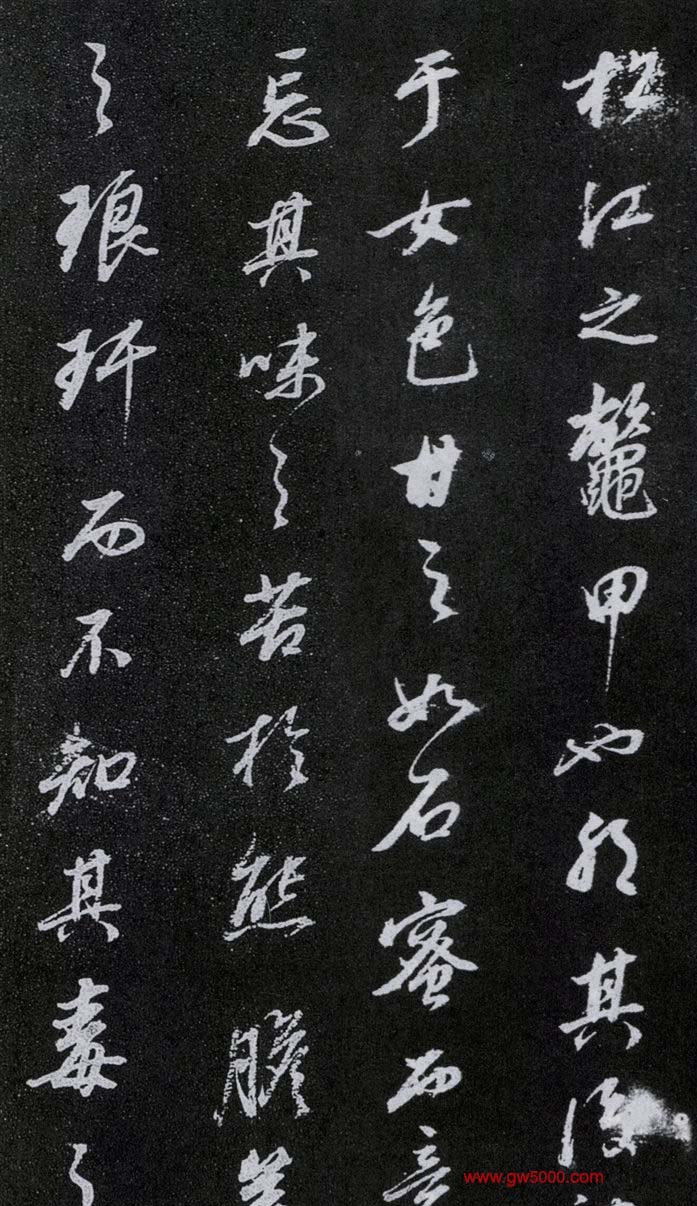 松江之鼇甲也其
于女色甘之如石蜜而
忘其味之苦於熊膽
之琅玕而不知其毒之
www.gw5000.com